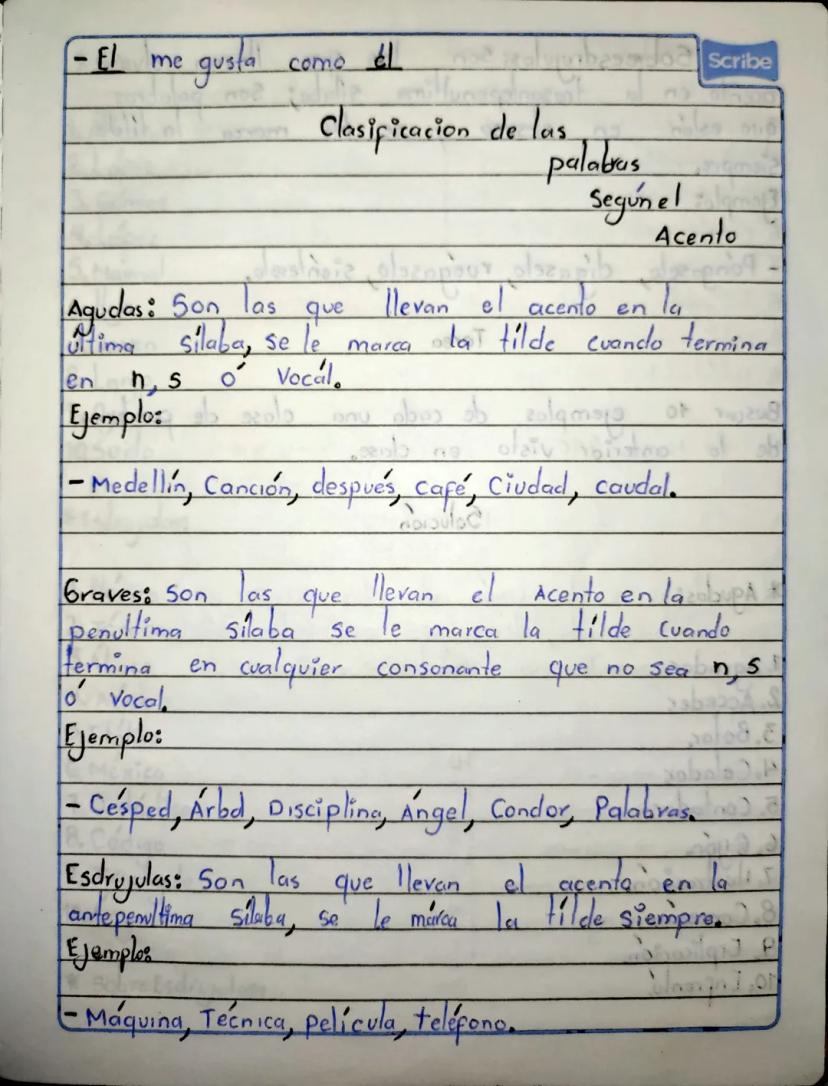 - El me gusta como él
Scribe
Clasificacion de las
palabras
Según el
Acento
Agudas: Son las que llevan el acento en la
última sílaba, se le marca la tílde cuando termina
en n, s ó vocál.
Ejemplo:
- Medellín, Canción, después, Café, Ciudad, caudal.
Graves: Son las que llevan el Acento en la
penultima sílaba se le marca la tílde cuando
termina en cualquier consonante que no sea n, s
ó vocal.
Ejemplo:
- Césped, Árbol, Disciplina, Ángel, Condor, Palabras.
Esdrujulas: Son las que llevan el acento en la
antepenultima sílaba, se le márca la tílde siempre.
Ejemplo:
- Máquina, Técnica, película, teléfono.